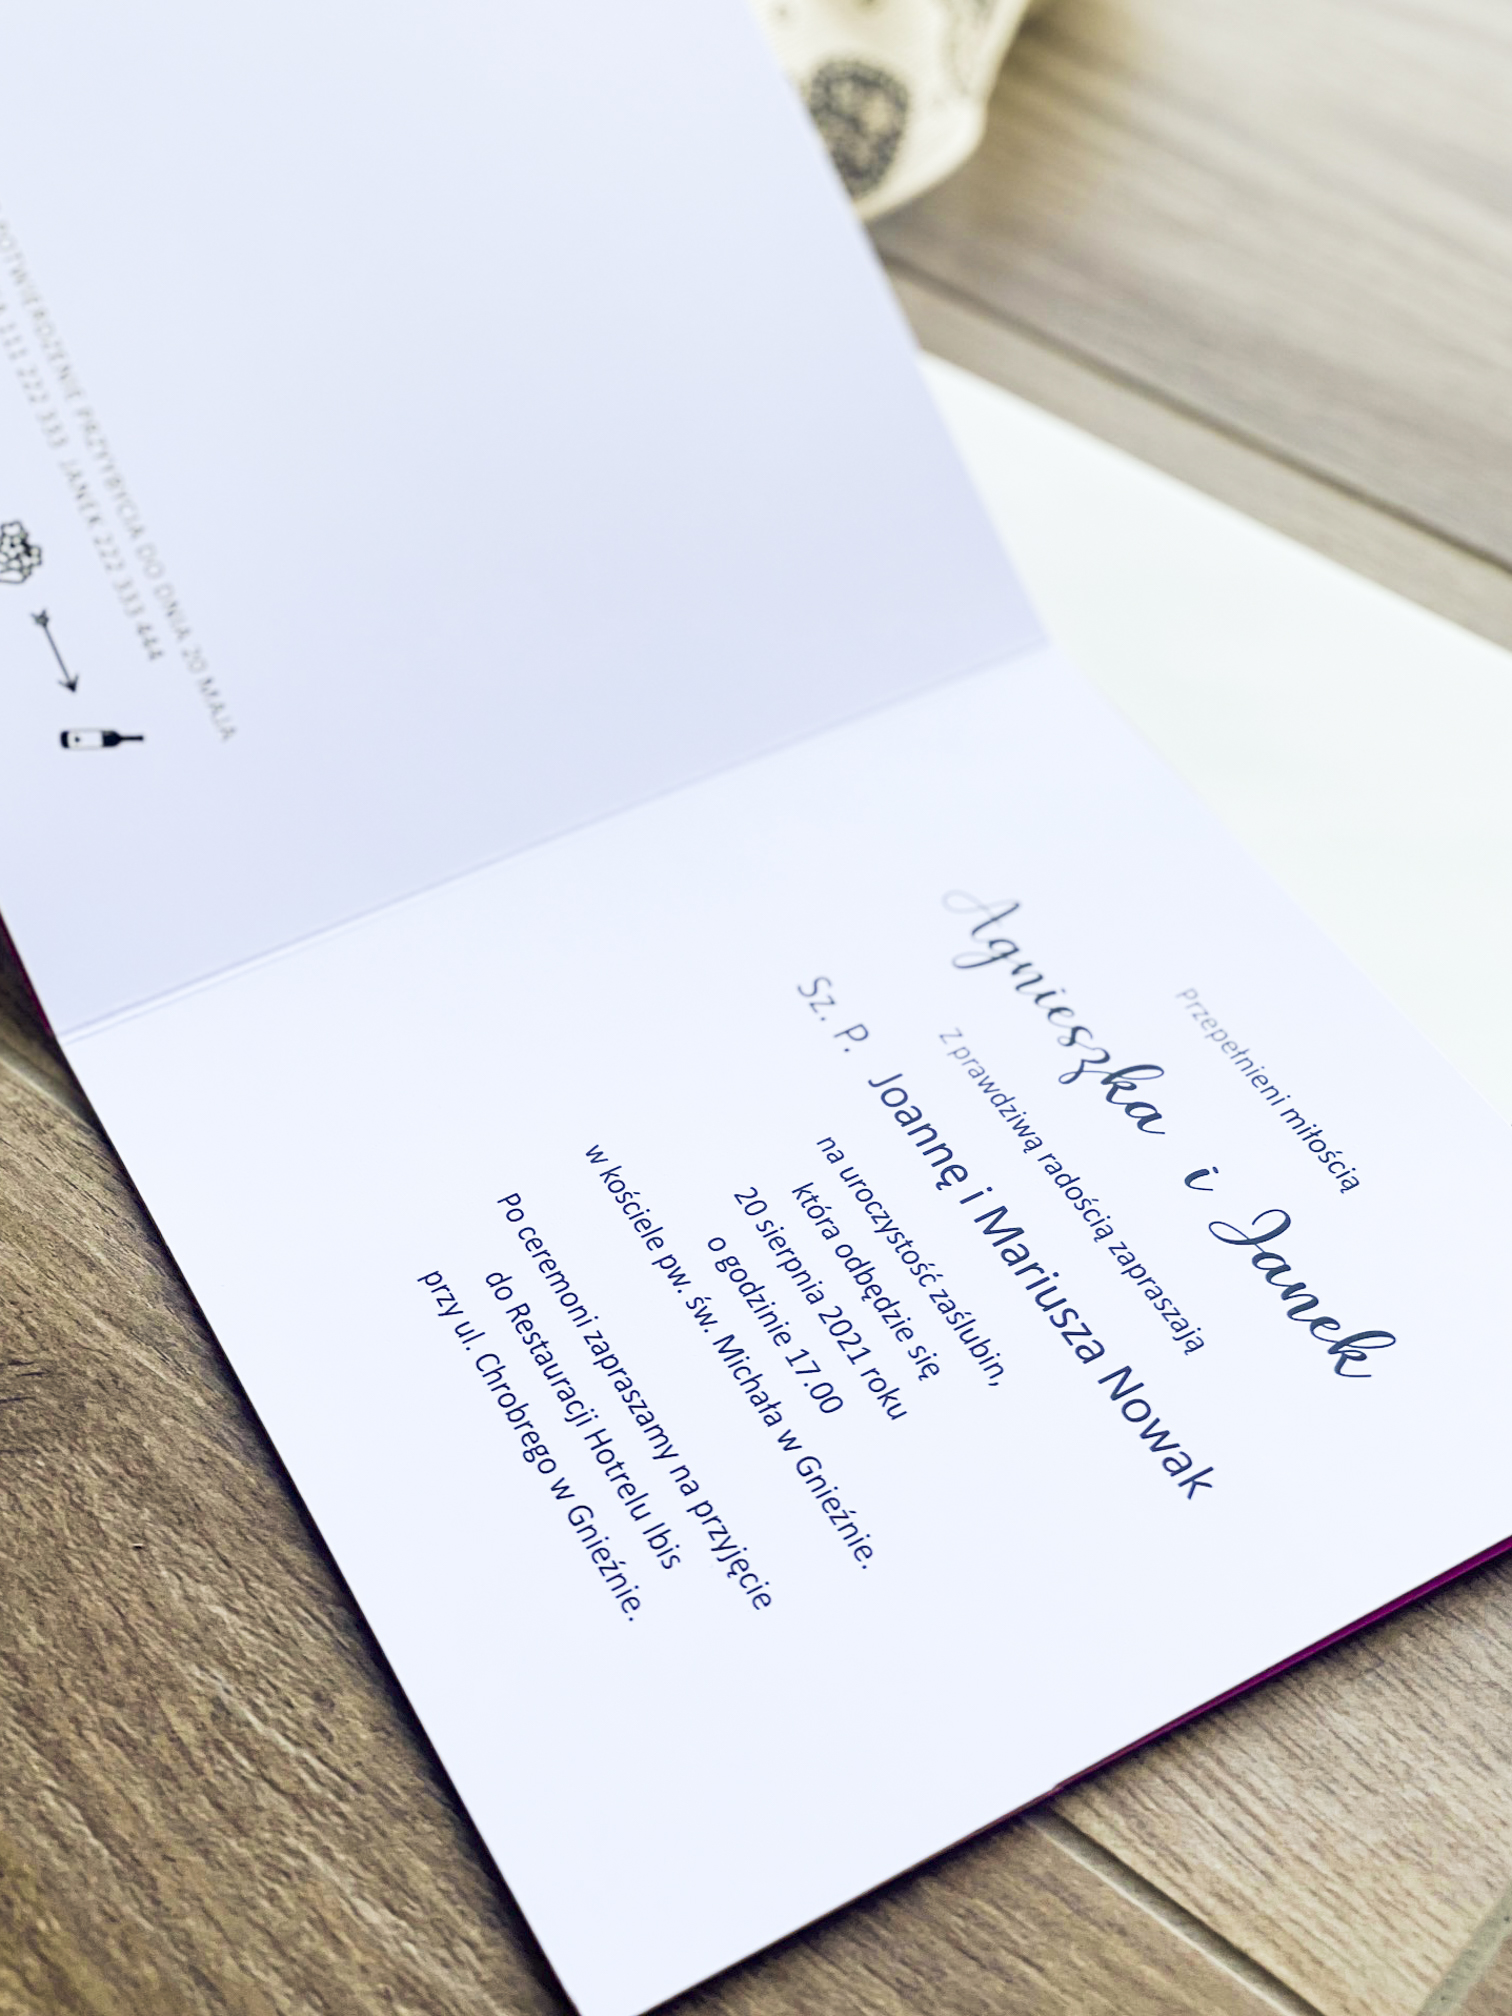 POTWIERDZENIE PRZYBYCIA DO DNIA 20 MAJA
111 222 333 JANEK 222 333 444
Przepełnieni miłością
Agnieszka i Janek
Z prawdziwą radością zapraszają
Sz. P. Joannę i Mariusza Nowak
na uroczystość zaślubin,
która odbędzie się
20 sierpnia 2021 roku
o godzinie 17.00
w kościele pw. św. Michała w Gnieźnie.
Po ceremoni zapraszamy na przyjęcie
do Restauracji Hotrelu Ibis
przy ul. Chrobrego w Gnieźnie.